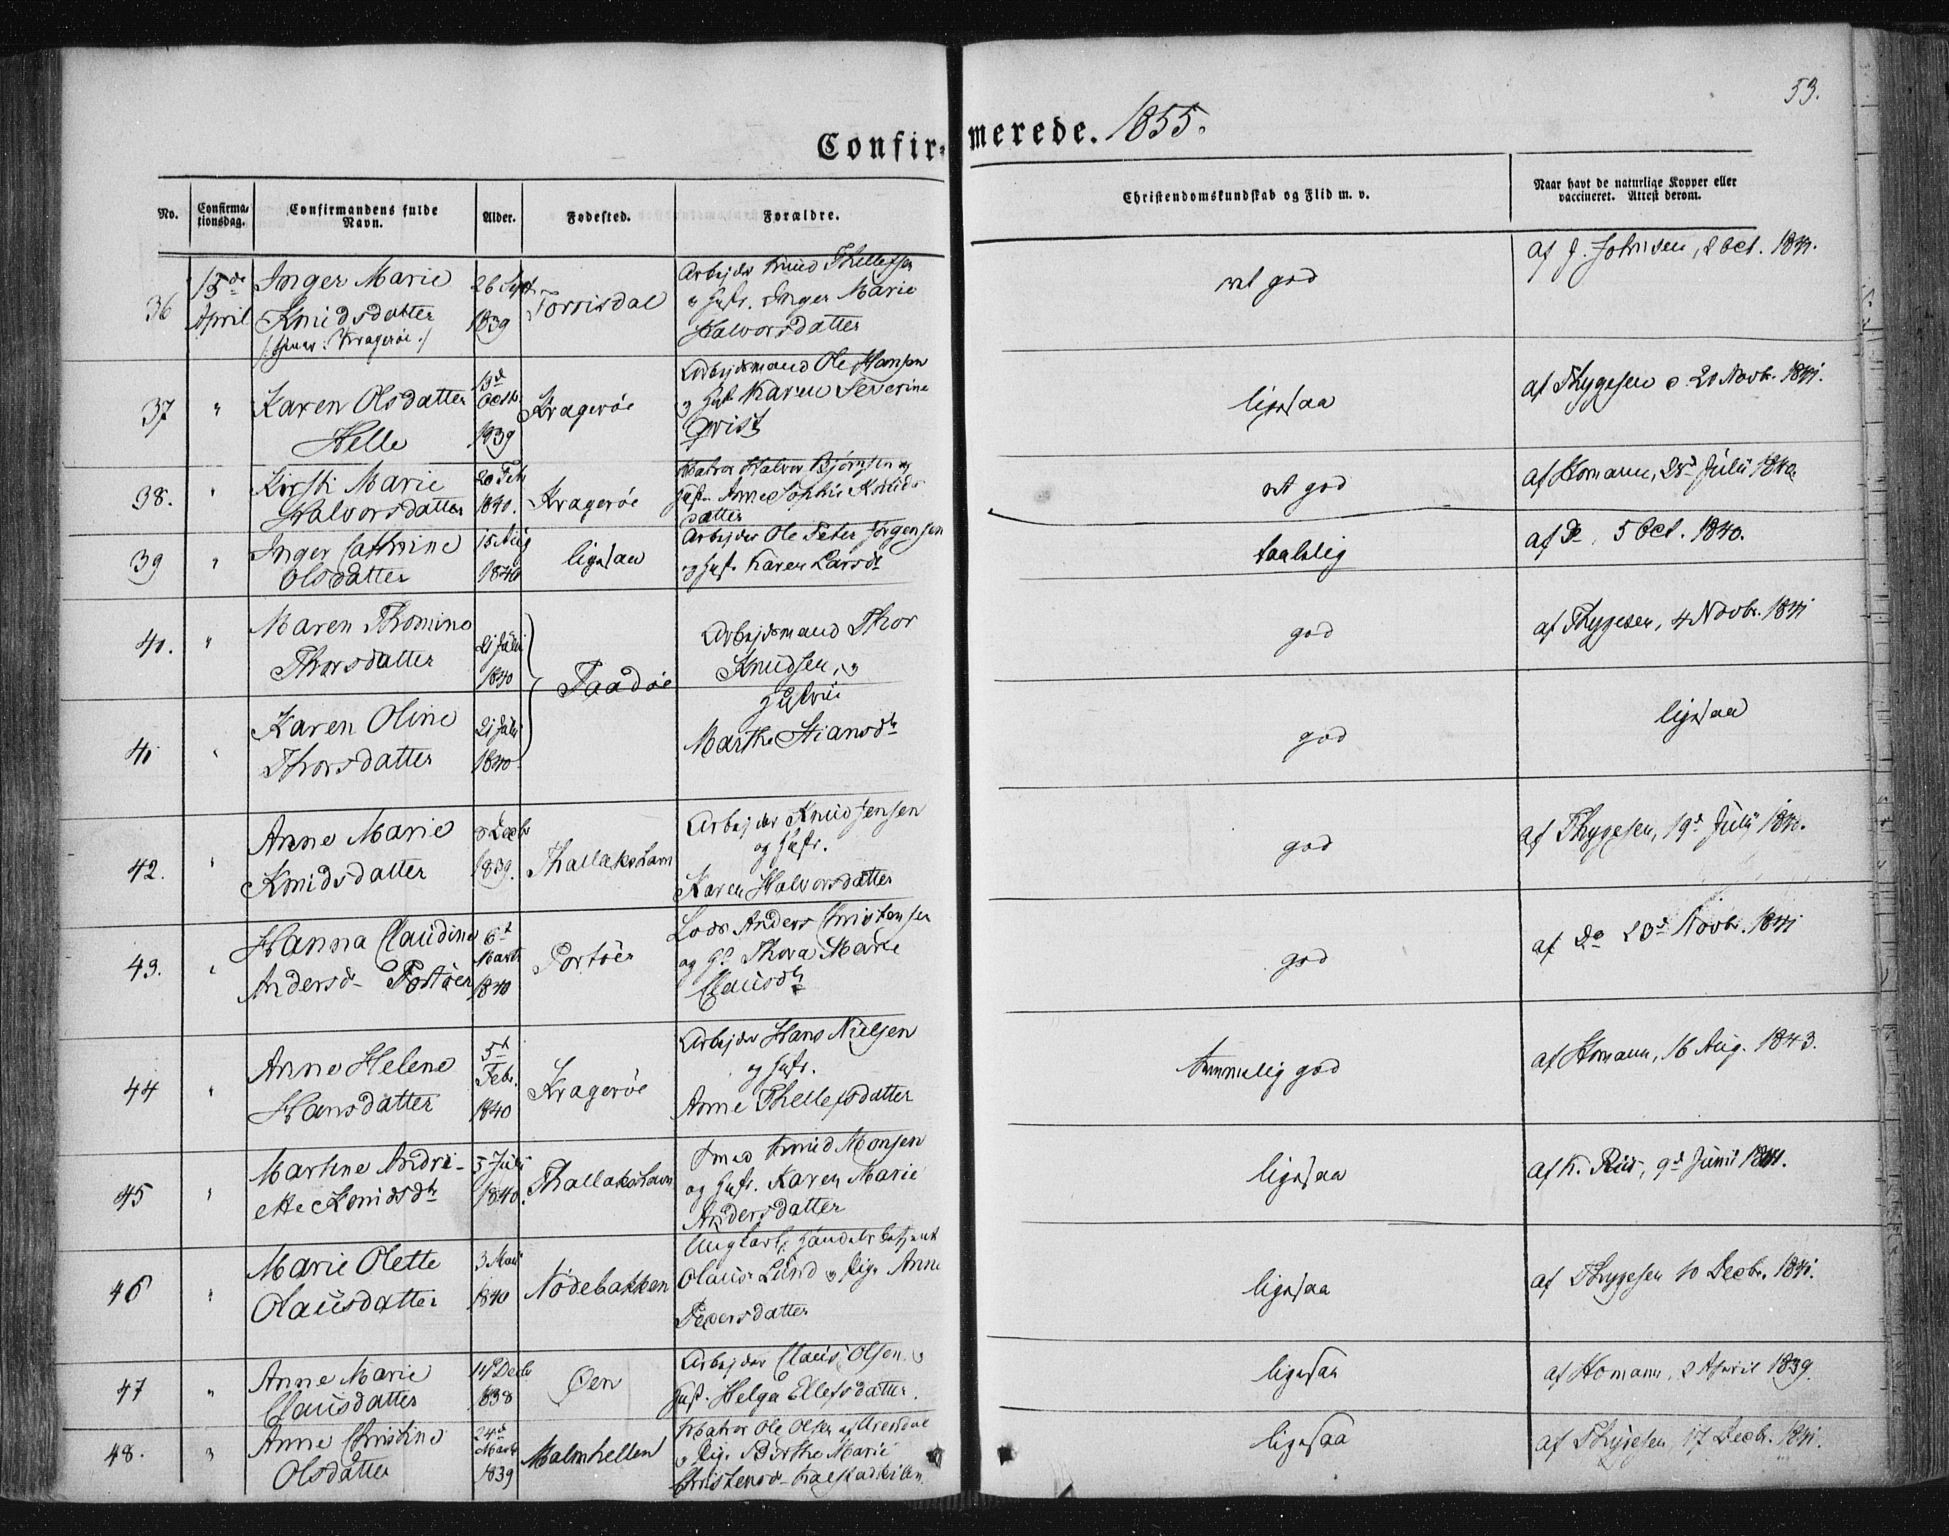 53.
Confirmerede. 1855.
No. Confirmationsdag. Confirmandens fulde Navn. Alder. Fødested. Forældre. Christendomskundskab og Flid m. v. Naar havt de naturlige Kopper eller vaccineret. Attest derom.
36 15de April Inger Marie Knudsdatter 26 Sept. 1839 Torrisdal Arbejder Knud Thellefsen & Hustr. Inger Marie Halvorsdatter
af J. Johnsen, 2 Oct.
37 " Karen Olsdatter Helle 1839 Kragerøe Arbejdsmand Ole Hansen og Hust Karen Severine Qvist
ligesaa af Thygesen d. 20 Novbr. 1841.
38. " Kirsti Marie Halvorsdatter 20 Feb 1840. Kragerøe Matros Halvor Bjørnsen og Hust. Anne Sophie Knudsdatter
ret god af Homann, 25d Juli 1840.
39 " Inger Cathrine Olsdatter 15 Aug 1840 ligesaa Arbejder Ole Peter Jørgensen og Hust. Karen Larsdr
taalelig af Do 5 Oct. 1840.
40. " Maren Thomine Thorsdatter 21 Juli 1840 Taadøe Arbejdsmand Thor Knudsen, og Hustrue Marthe Stiansdr
god af Thygesen, 4 Novbr. 1841
41 " Karen Oline Thorsdatter 21 Juli 1840
god ligesaa
42. " Anne Marie Knudsdatter 8 Decbr 1839. Thallakshavn Arbejder Knud Jensen og Hustr. Karen Halvorsdatter
god af Thygesen, 19d Juli 1841.
43. " Hanna Claudine Andersd. Portøen 6t Marts 1840 Portøen Lods Anders Christensen og H. Thora Marie Clausdr
god af Do 23d Novbr. 1841
44 " Anne Helene Hansdatter 5t Febr. 1840 Kragerøe Arbejder Hans Nielsen og Hustr. Anne Thellefsdatter
temmelig god af Homann, 16 Aug. 1843.
45 " Martine Andriette Knudsdr 5 Juli 1840. Thallakshavn Smed Knud Monsen og Hustr. Karen Marie Andersdatter
ligesaa af K. Riis, 9d Junii 1841.
46 " Marie Olette Olausdatter 3 Mai 1840 Nødebakken Ungkarl, Handelsbetjent Olaus Lund og Pige Anne Pedersdatter
ligesaa af Thygesen 10 Decbr. 1841.
47 " Anne Marie Clausdatter 14 Decbr 1838 Øen Arbejder Claus Olsen og Hust. Helga Ellefsdatter.
ligesaa af Homann, 2 April 1839.
48. " Anne Christine Olsdatter 24d Marts 1839 Malmhellen Matros Ole Olsen og Pige Berthe Marie Christensd.
ligesaa af Thygesen, 17 Decbr. 1841.